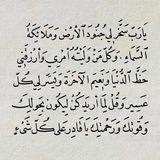 يَارَبِّ سَخِّرْ لِي جُنُودَ الأَرْضِ وَمَلَائِكَةَ
السَّمَاءِ . وَكُلَّ مَنْ وَلَّيْتَهُ أَمْرِي وَارْزُقْنِي
حَظَّ الدُّنْيَا وَنَعِيمَ الآخِرَةِ وَيَسِّرْ لِي كُلَّ
عَسِيرٍ وَقُلْ لِمَا أُرِيدُ كُنْ لِيَكُونَ بِحَوْلِكَ
وَقُوَّتِكَ وَرَحْمَتِكَ يَا قَادِرُ عَلَى كُلِّ شَيْءٍ